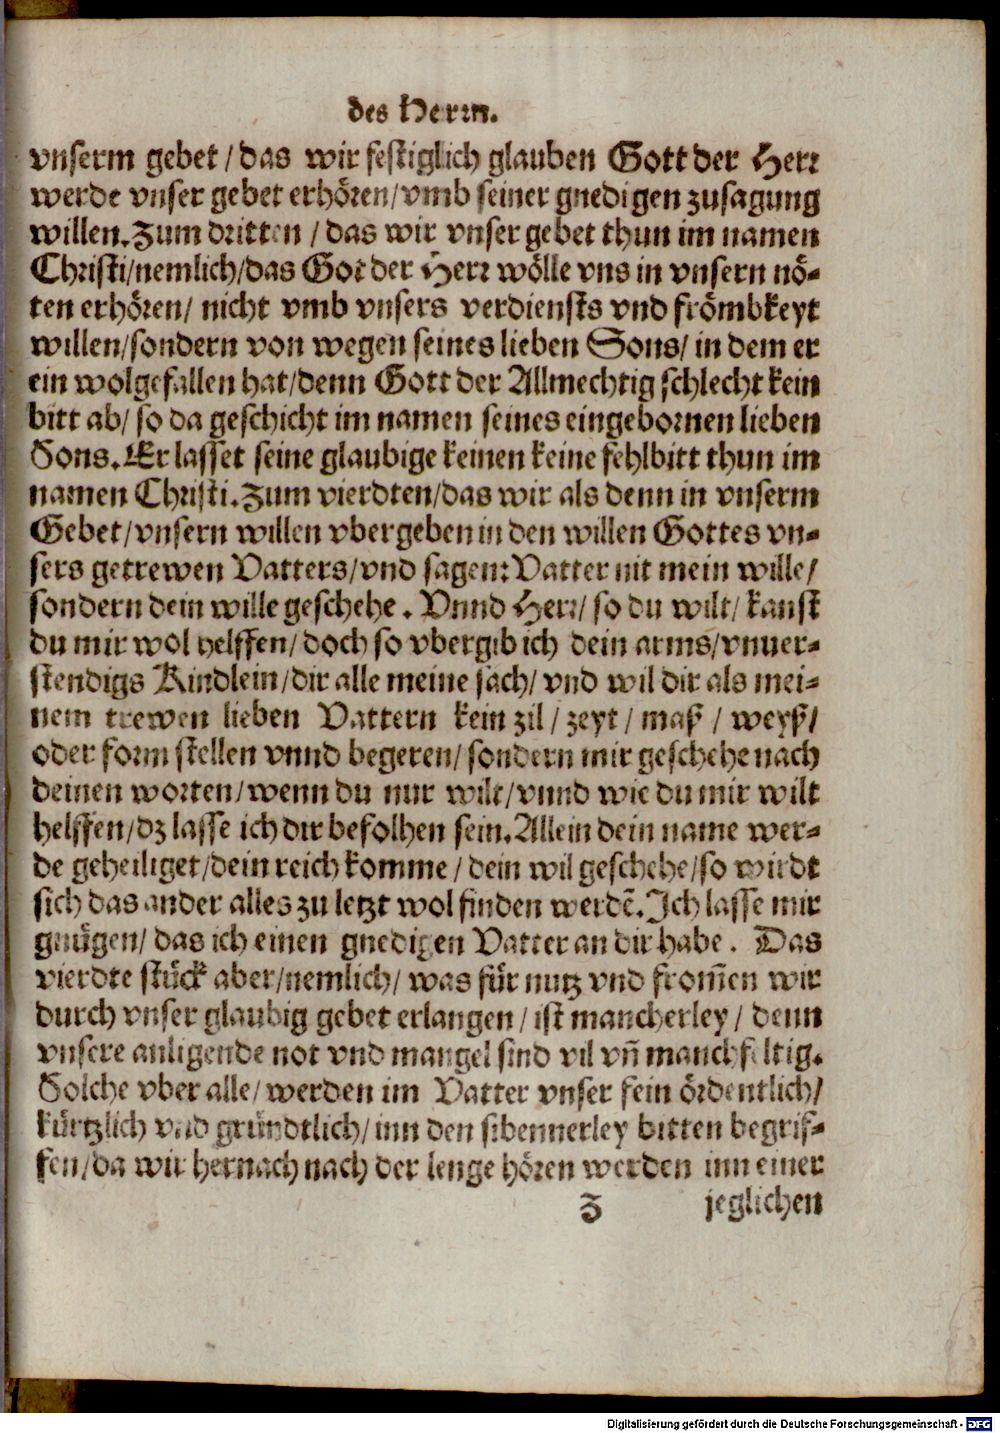 des Herrn.
vnserm gebet / das wir festiglich glauben Gott der Herr
werde vnser gebet erhören/vmb seiner gnedigen zusagung
willen. Zum dritten / das wir vnser gebet thun im namen
Christi/nemlich/das Got der Herr wölle vns in vnsern nö-
ten erhören/ nicht vmb vnsers verdiensts vnd frömbkeyt
willen/sondern von wegen seines lieben Sons/ in dem er
ein wolgefallen hat/denn Gott der Allmechtig schlecht kein
bitt ab/ so da geschicht im namen seines eingebornen lieben
Sons. Er lasset seine glaubige keinen keine fehlbitt thun im
namen Christi. Zum vierdten/das wir als denn in vnserm
Gebet/vnsern willen vbergeben in den willen Gottes vn-
sers getrewen Vatters/vnd sagen: Vatter nit mein wille/
sondern dein wille geschehe. Vnnd Herr/ so du wilt/ kanst
du mir wol helffen/ doch so vbergib ich dein arms/vnuer-
stendigs Kindlein/dir alle meine sach/ vnd wil dir als mei-
nem trewen lieben Vattern kein zil / zeyt / maß / weyß/
oder form stellen vnnd begeren/ sondern mir geschehe nach
deinen worten/wenn du nur wilt/vnnd wie du mir wilt
helffen/dz lasse ich dir befolhen sein. Allein dein name wer-
de geheiliget/dein reich komme / dein wil geschehe/so wirdt
sich das ander alles zu letzt wol finden werdē. Ich lasse mir
gnügen/ das ich einen gnedigen Vatter an dir habe. Das
vierdte stück aber/nemlich/ was für nutz vnd from̄en wir
durch vnser glaubig gebet erlangen / ist mancherley / denn
vnsere anligende not vnd mangel sind vil vn̄ manchfeltig.
Solche vber alle/ werden im Vatter vnser fein ördentlich/
kürtzlich vnd gründtlich/ inn den sibennerley bitten begrif-
fen/da wir hernach nach der lenge hören werden inn einer
Z jeglichen
Digitalisierung gefördert durch die Deutsche Forschungsgemeinschaft - DFG